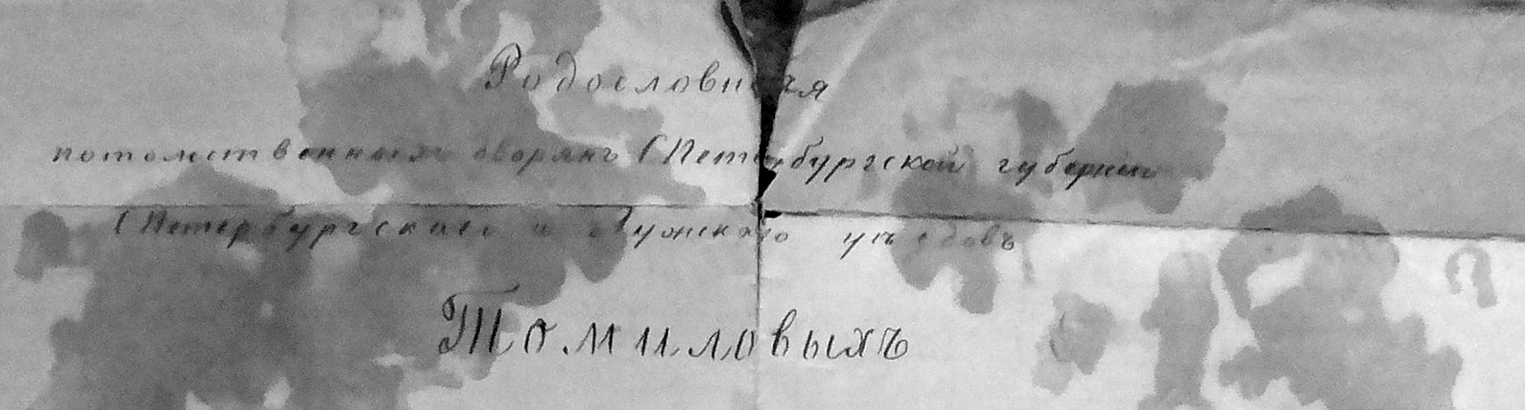 Родословная
потомственныхъ дворянъ СПетербургской губернiи
СПетербургскаго и Лужскаго уѣздовъ
Томиловыхъ